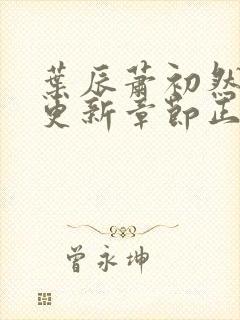 葉辰蕭初然
更新章節正
曾永坤